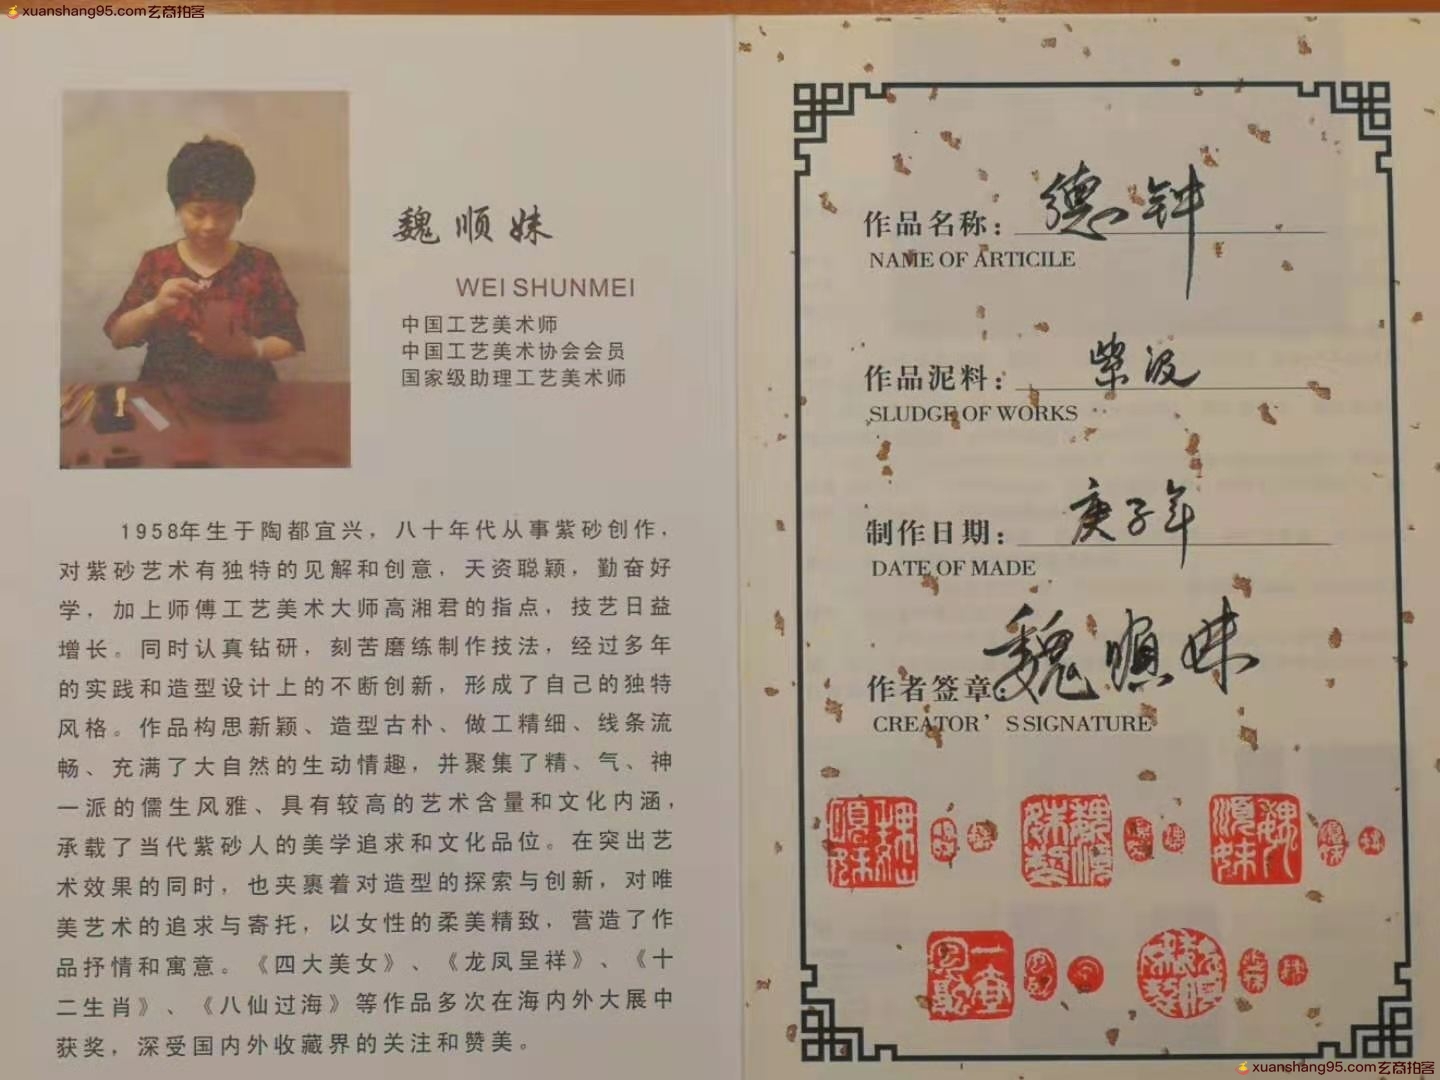 xuanshang95.com玄商拍客
魏顺妹
WEI SHUNMEI
中国工艺美术师
中国工艺美术协会会员
国家级助理工艺美术师
1958年生于陶都宜兴，八十年代从事紫砂创作，
对紫砂艺术有独特的见解和创意，天资聪颖，勤奋好
学，加上师傅工艺美术大师高湘君的指点，技艺日益
增长。同时认真钻研，刻苦磨练制作技法，经过多年
的实践和造型设计上的不断创新，形成了自己的独特
风格。作品构思新颖、造型古朴、做工精细、线条流
畅、充满了大自然的生动情趣，并聚集了精、气、神
一派的儒生风雅、具有较高的艺术含量和文化内涵，
承载了当代紫砂人的美学追求和文化品位。在突出艺
术效果的同时，也夹裹着对造型的探索与创新，对唯
美艺术的追求与寄托，以女性的柔美精致，营造了作
品抒情和寓意。《四大美女》、《龙凤呈祥》、《十
二生肖》、《八仙过海》等作品多次在海内外大展中
获奖，深受国内外收藏界的关注和赞美。
xuanshang95.com玄商拍客
作品名称：德钟
NAME OF ARTICILE
作品泥料：紫泥
SLUDGE OF WORKS
制作日期：庚子年
DATE OF MADE
作者签章：魏顺妹
CREATOR’S SIGNATURE
xuanshang95.com玄商拍客